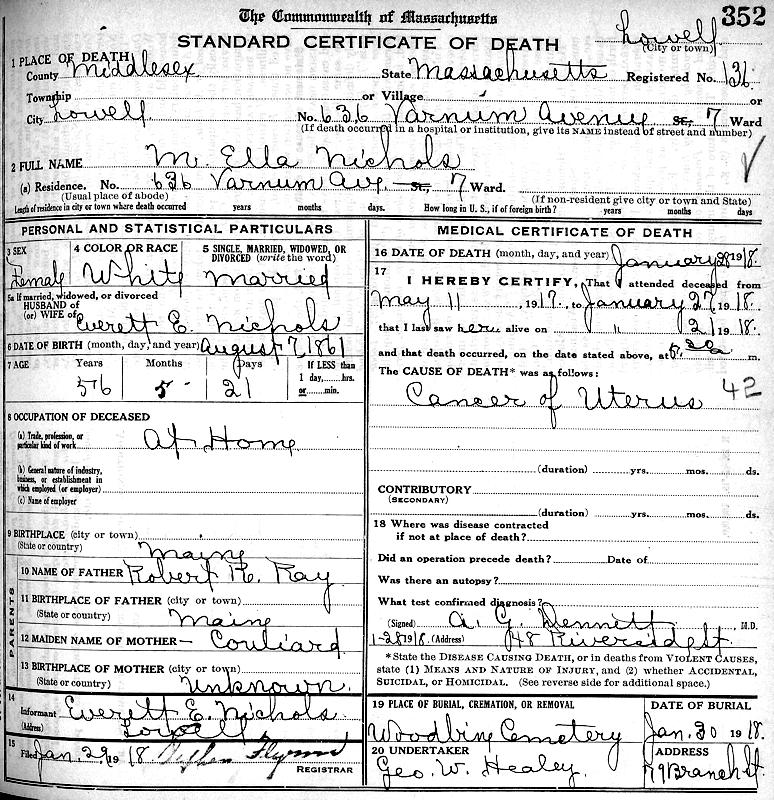 The Commonwealth of Massachusetts
352
STANDARD CERTIFICATE OF DEATH
Lowell
(City or town)
1 PLACE OF DEATH
County Middlesex State Massachusetts Registered No. 136
Township or Village or
City Lowell No. 636 Varnum Avenue St., 7 Ward
(If death occurred in a hospital or institution, give its NAME instead of street and number)
2 FULL NAME M. Ella Nichols
(a) Residence. No. 636 Varnum Ave. St., 7 Ward.
(Usual place of abode) (If non-resident give city or town and State)
Length of residence in city or town where death occurred years months days How long in U. S., if of foreign birth? years months days
PERSONAL AND STATISTICAL PARTICULARS
3 SEX 4 COLOR OR RACE 5 SINGLE, MARRIED, WIDOWED, OR
DIVORCED (write the word)
Female White Married
5a If married, widowed, or divorced
HUSBAND of
(or) WIFE of Everett E. Nichols
6 DATE OF BIRTH (month, day, and year) August 7, 1861
7 AGE Years Months Days If LESS than
56 5 21 1 day,......hrs.
or......min.
8 OCCUPATION OF DECEASED
(a) Trade, profession, or
particular kind of work At Home
(b) General nature of industry,
business, or establishment in
which employed (or employer)
(c) Name of employer
9 BIRTHPLACE (city or town)
(State or country) Maine
PARENTS
10 NAME OF FATHER Robert R. Ray
11 BIRTHPLACE OF FATHER (city or town)
(State or country) Maine
12 MAIDEN NAME OF MOTHER — Couliard
13 BIRTHPLACE OF MOTHER (city or town)
(State or country) Unknown.
14
Informant Everett E. Nichols
(Address) Lowell
15
Filed Jan. 29, 1918 Stephen Flynn
REGISTRAR
MEDICAL CERTIFICATE OF DEATH
16 DATE OF DEATH (month, day, and year) January 28 1918.
17
I HEREBY CERTIFY, That I attended deceased from
May 11, 1917, to January 27, 1918.
that I last saw her alive on " 21 1918.
and that death occurred, on the date stated above, at 5.20a m.
The CAUSE OF DEATH* was as follows:
Cancer of Uterus 42
(duration) yrs. mos. ds.
CONTRIBUTORY
(SECONDARY)
(duration) yrs. mos. ds.
18 Where was disease contracted
if not at place of death?
Did an operation precede death? Date of
Was there an autopsy?
What test confirmed diagnosis?
(Signed) A. G. Dennett M.D.
1-28 1918. (Address) 148 Riverside St
*State the DISEASE CAUSING DEATH, or in deaths from VIOLENT CAUSES,
state (1) MEANS AND NATURE OF INJURY, and (2) whether ACCIDENTAL,
SUICIDAL, or HOMICIDAL. (See reverse side for additional space.)
19 PLACE OF BURIAL, CREMATION, OR REMOVAL DATE OF BURIAL
Woodbine Cemetery Jan. 30 1918.
20 UNDERTAKER ADDRESS
Geo. W. Healey. 79 Branch St.